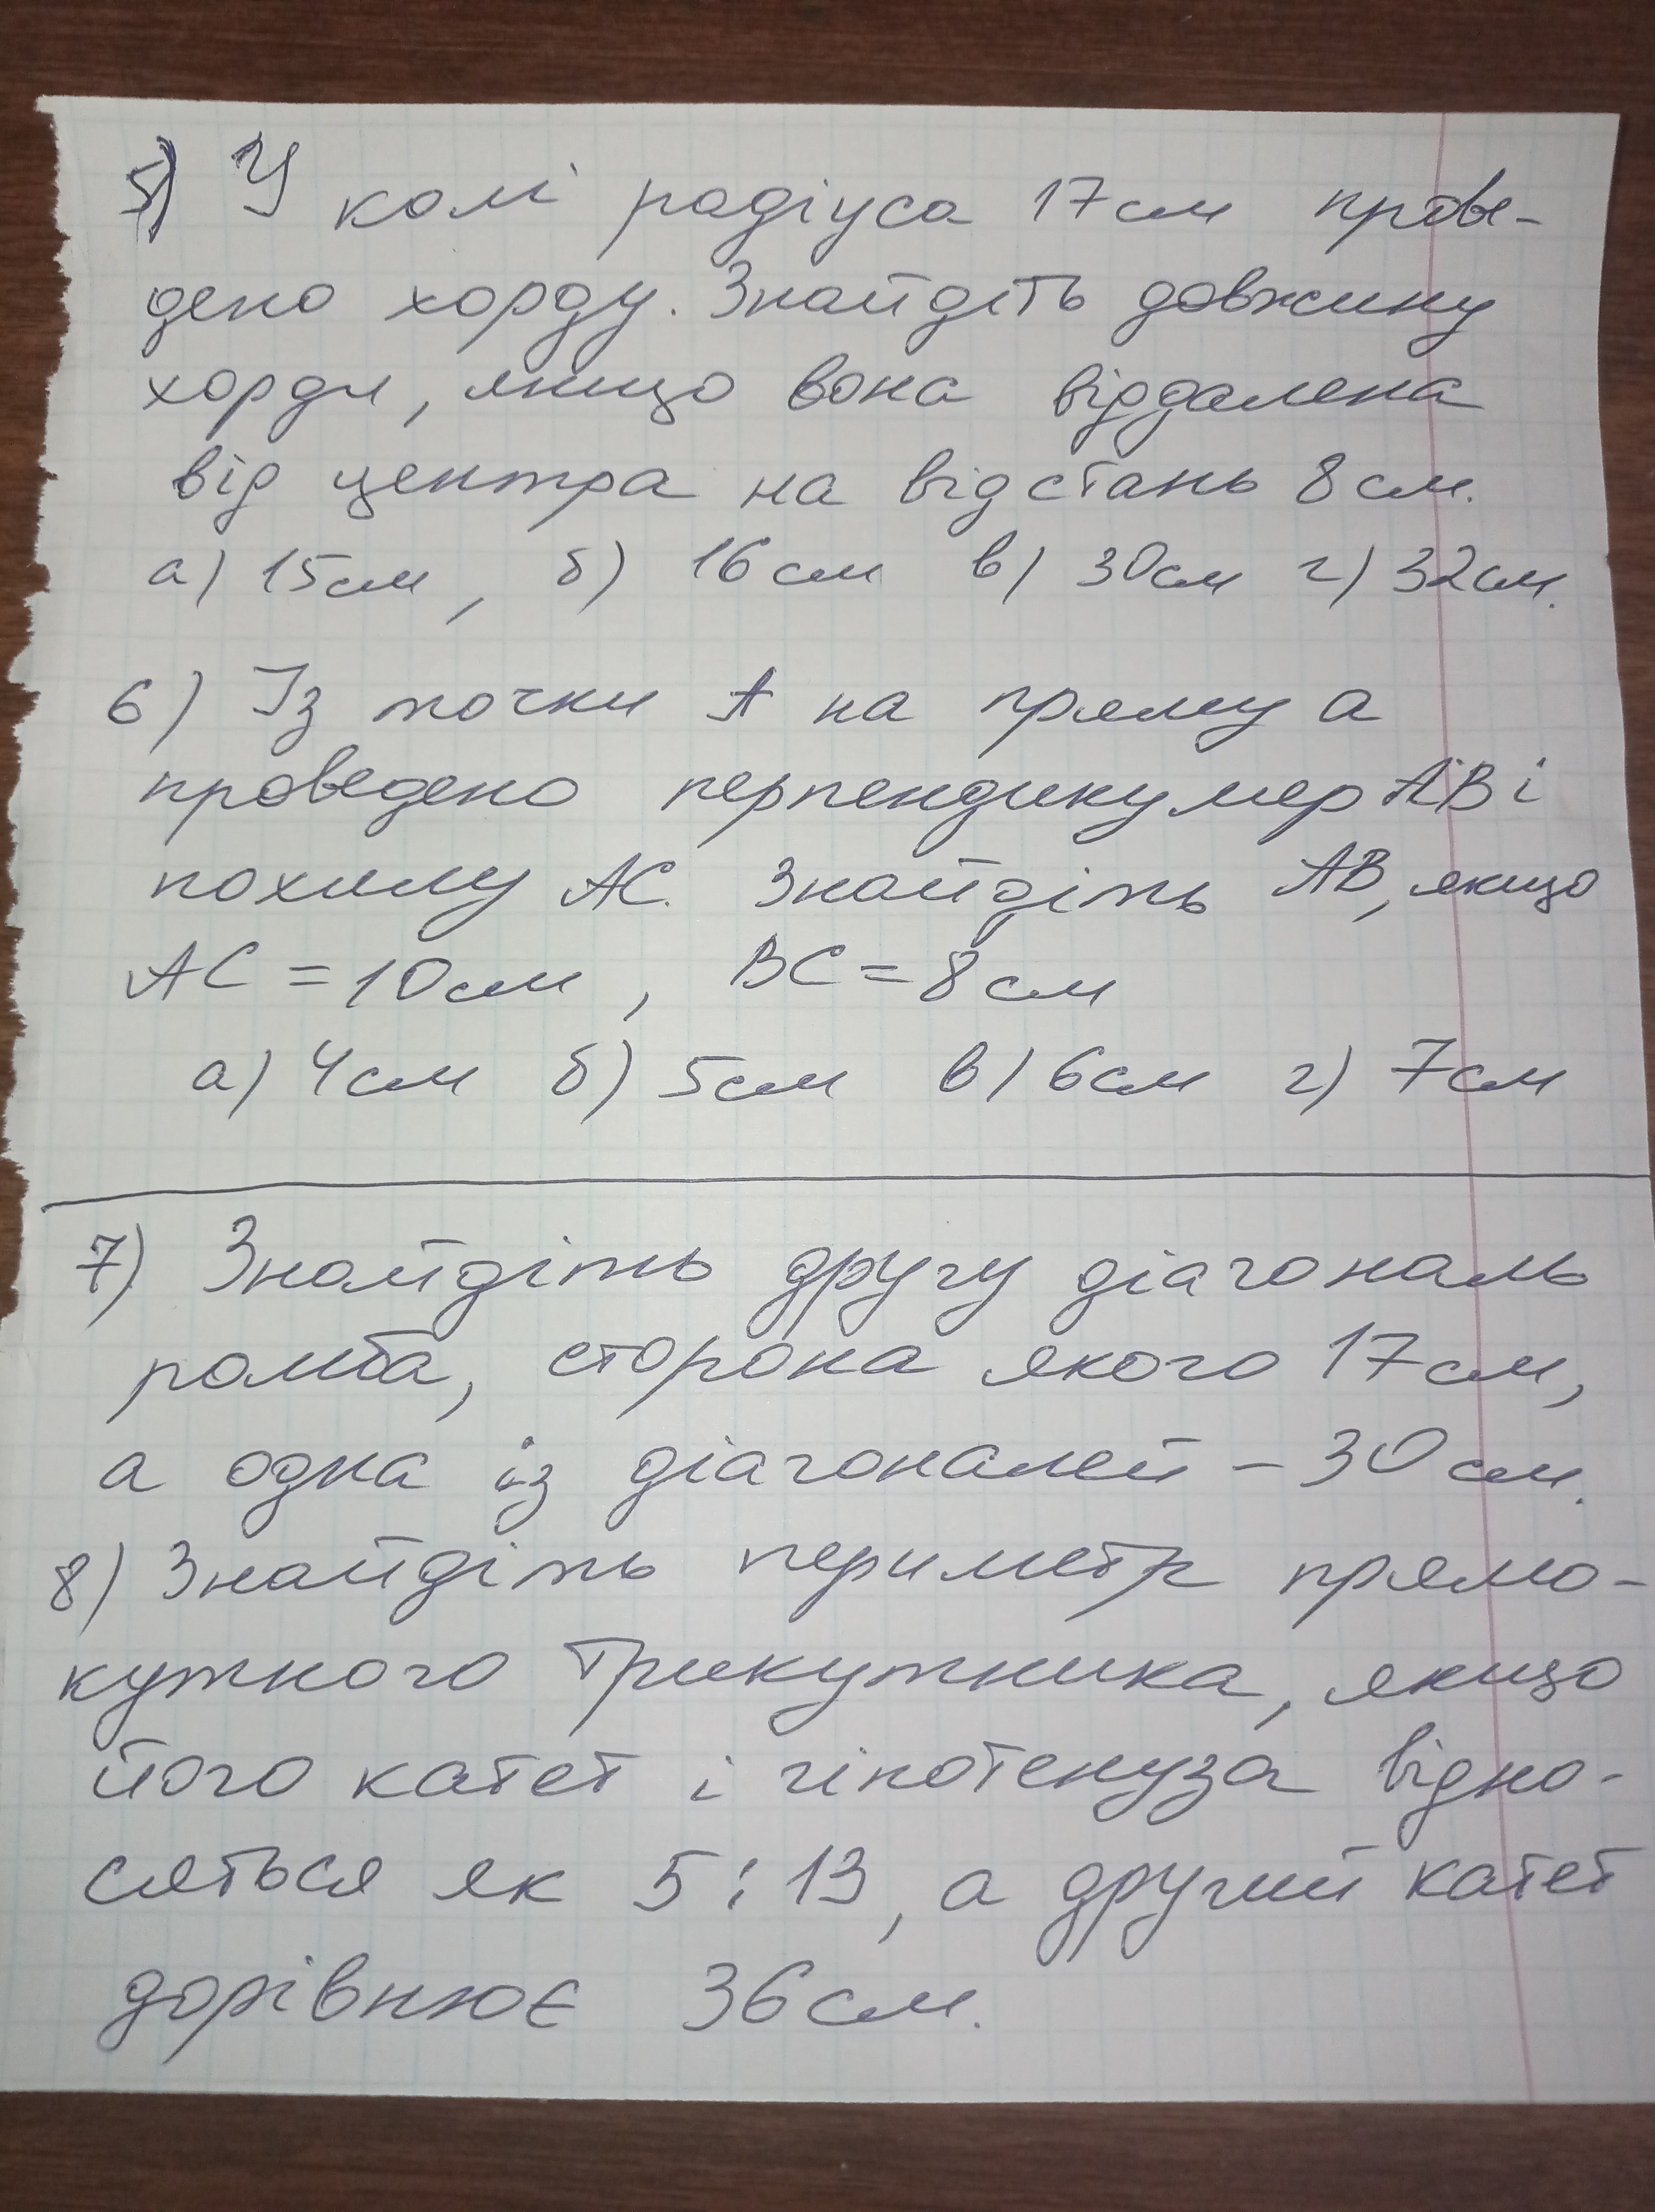 5) У колі радіуса 17см прове-
дено хорду. Знайдіть довжину
хорди, якщо вона віддалена
від центра на відстань 8см.
а) 15см, б) 16см в) 30см г) 32см.
6) Із точки А на пряму а
проведено перпендикуляр АВ і
похилу АС. Знайдіть АВ, якщо
АС = 10см, ВС = 8см
а) 4см б) 5см в) 6см г) 7см
7) Знайдіть другу діагональ
ромба, сторона якого 17см,
а одна із діагоналей – 30см.
8) Знайдіть периметр прямо-
кутного трикутника, якщо
його катет і гіпотенуза відно-
сяться як 5:13, а другий катет
дорівнює 36см.